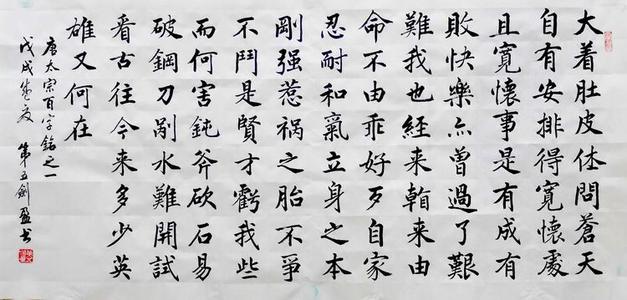 大着肚皮休問蒼天
自有安排得寬懷處
且寬懷事是有成有
敗快樂亦曾過了艱
難我也經來来由
命不由乖好歹自家
忍耐和氣立身之本
剛强惹祸之胎不爭
不鬥是賢才虧我些
而何害鈍斧砍石易
破鋼刀剐水難開試
看古往今来多少英
雄又何在
唐太宗百字銘之一
戊戌夏 第五劍盈书